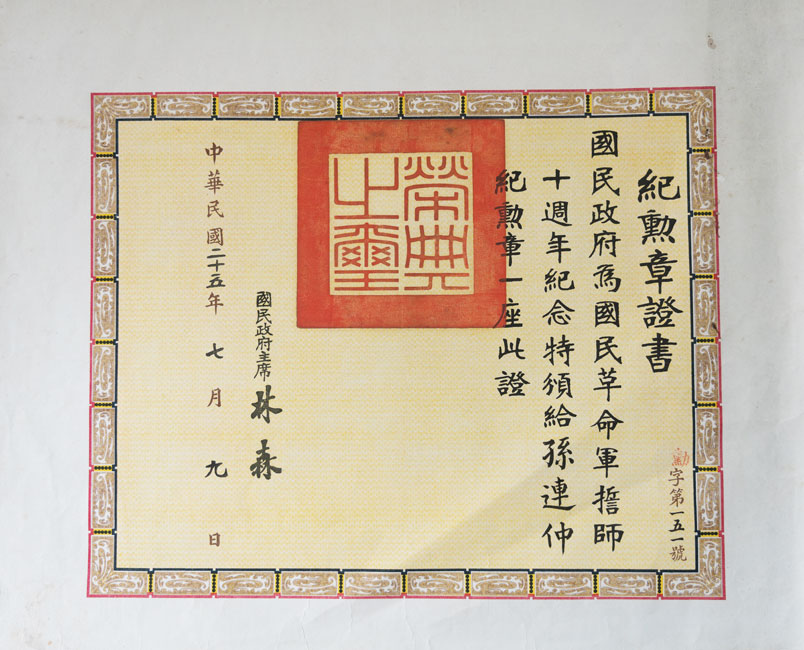 紀勲章證書
勳字第一五一號
國民政府爲國民革命軍誓師
十週年紀念特頒給孫連仲
紀勲章一座此證
榮典之璽
國民政府主席 林森
中華民國二十五年七月九日